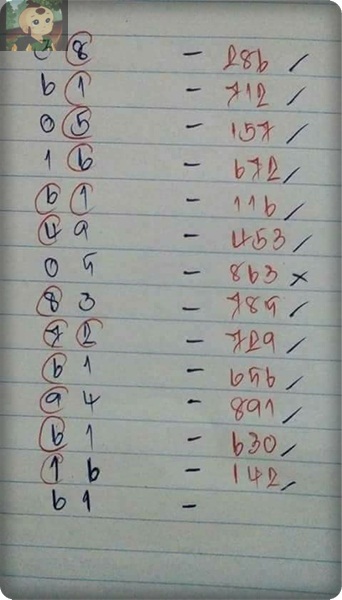 8 - 286 /
6 1 - 712 /
0 5 - 157 /
1 6 - 672 /
6 1 - 116 /
4 9 - 453 /
0 5 - 863 ×
8 3 - 785 /
7 2 - 729 /
6 1 - 656 /
9 4 - 891 /
6 1 - 630 /
1 6 - 142 /
6 1 -